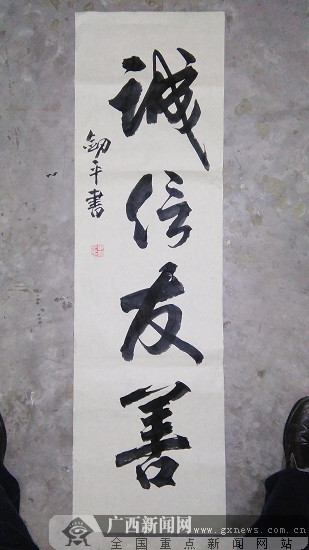 誠信友善
劍平書
广西新闻网
www.gxnews.com.cn
全国重点新闻网站